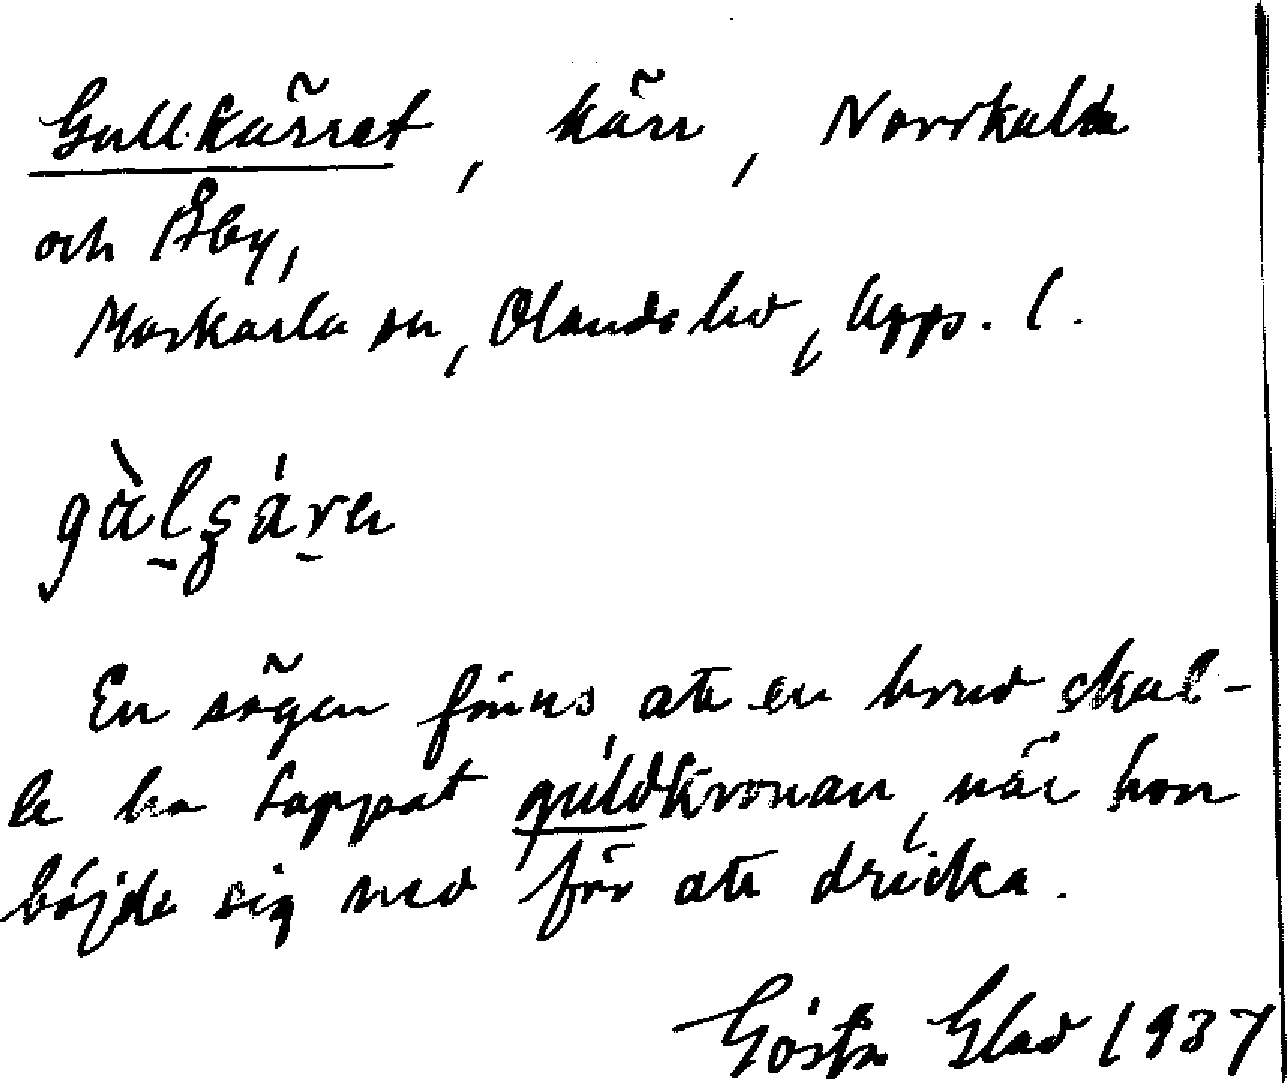 Gullkärret, kärr, Norrkulla
och Åby,
Morkarla sn, Olands hd, Upps. l.
gàlʂárɐ
En sägen finns att en brud skul-
le ha tappat guldkronan, när hon
böjde sig ned för att dricka.
Gösta Glad 1937